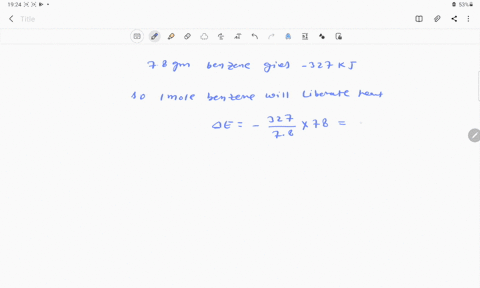 19:24
53%
Title
7.8 gm benzene gies -327 KJ
so 1 mole benzene will Liberate heat
ΔE = - 327/7.8 × 78 =